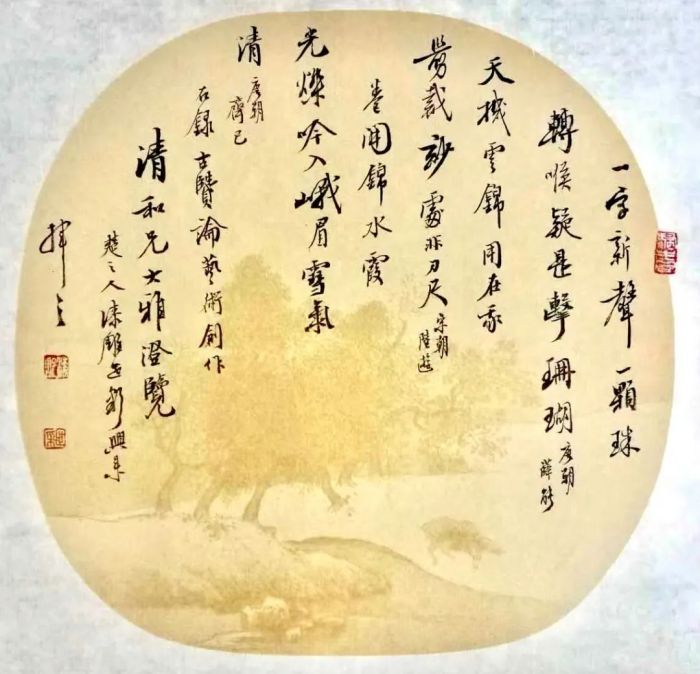 一字新聲一顆珠
轉喉疑是擊珊瑚
唐朝
薛能
天機雲錦用在我
剪裁妙處非刀尺
宋朝
陸遊
卷開錦水霞
光爍吟入峨眉雪氣
清
唐朝
齊己
右錄古賢論藝術創作
清和兄大雅澄覽
楚之人漆雕世彩興來
揮之